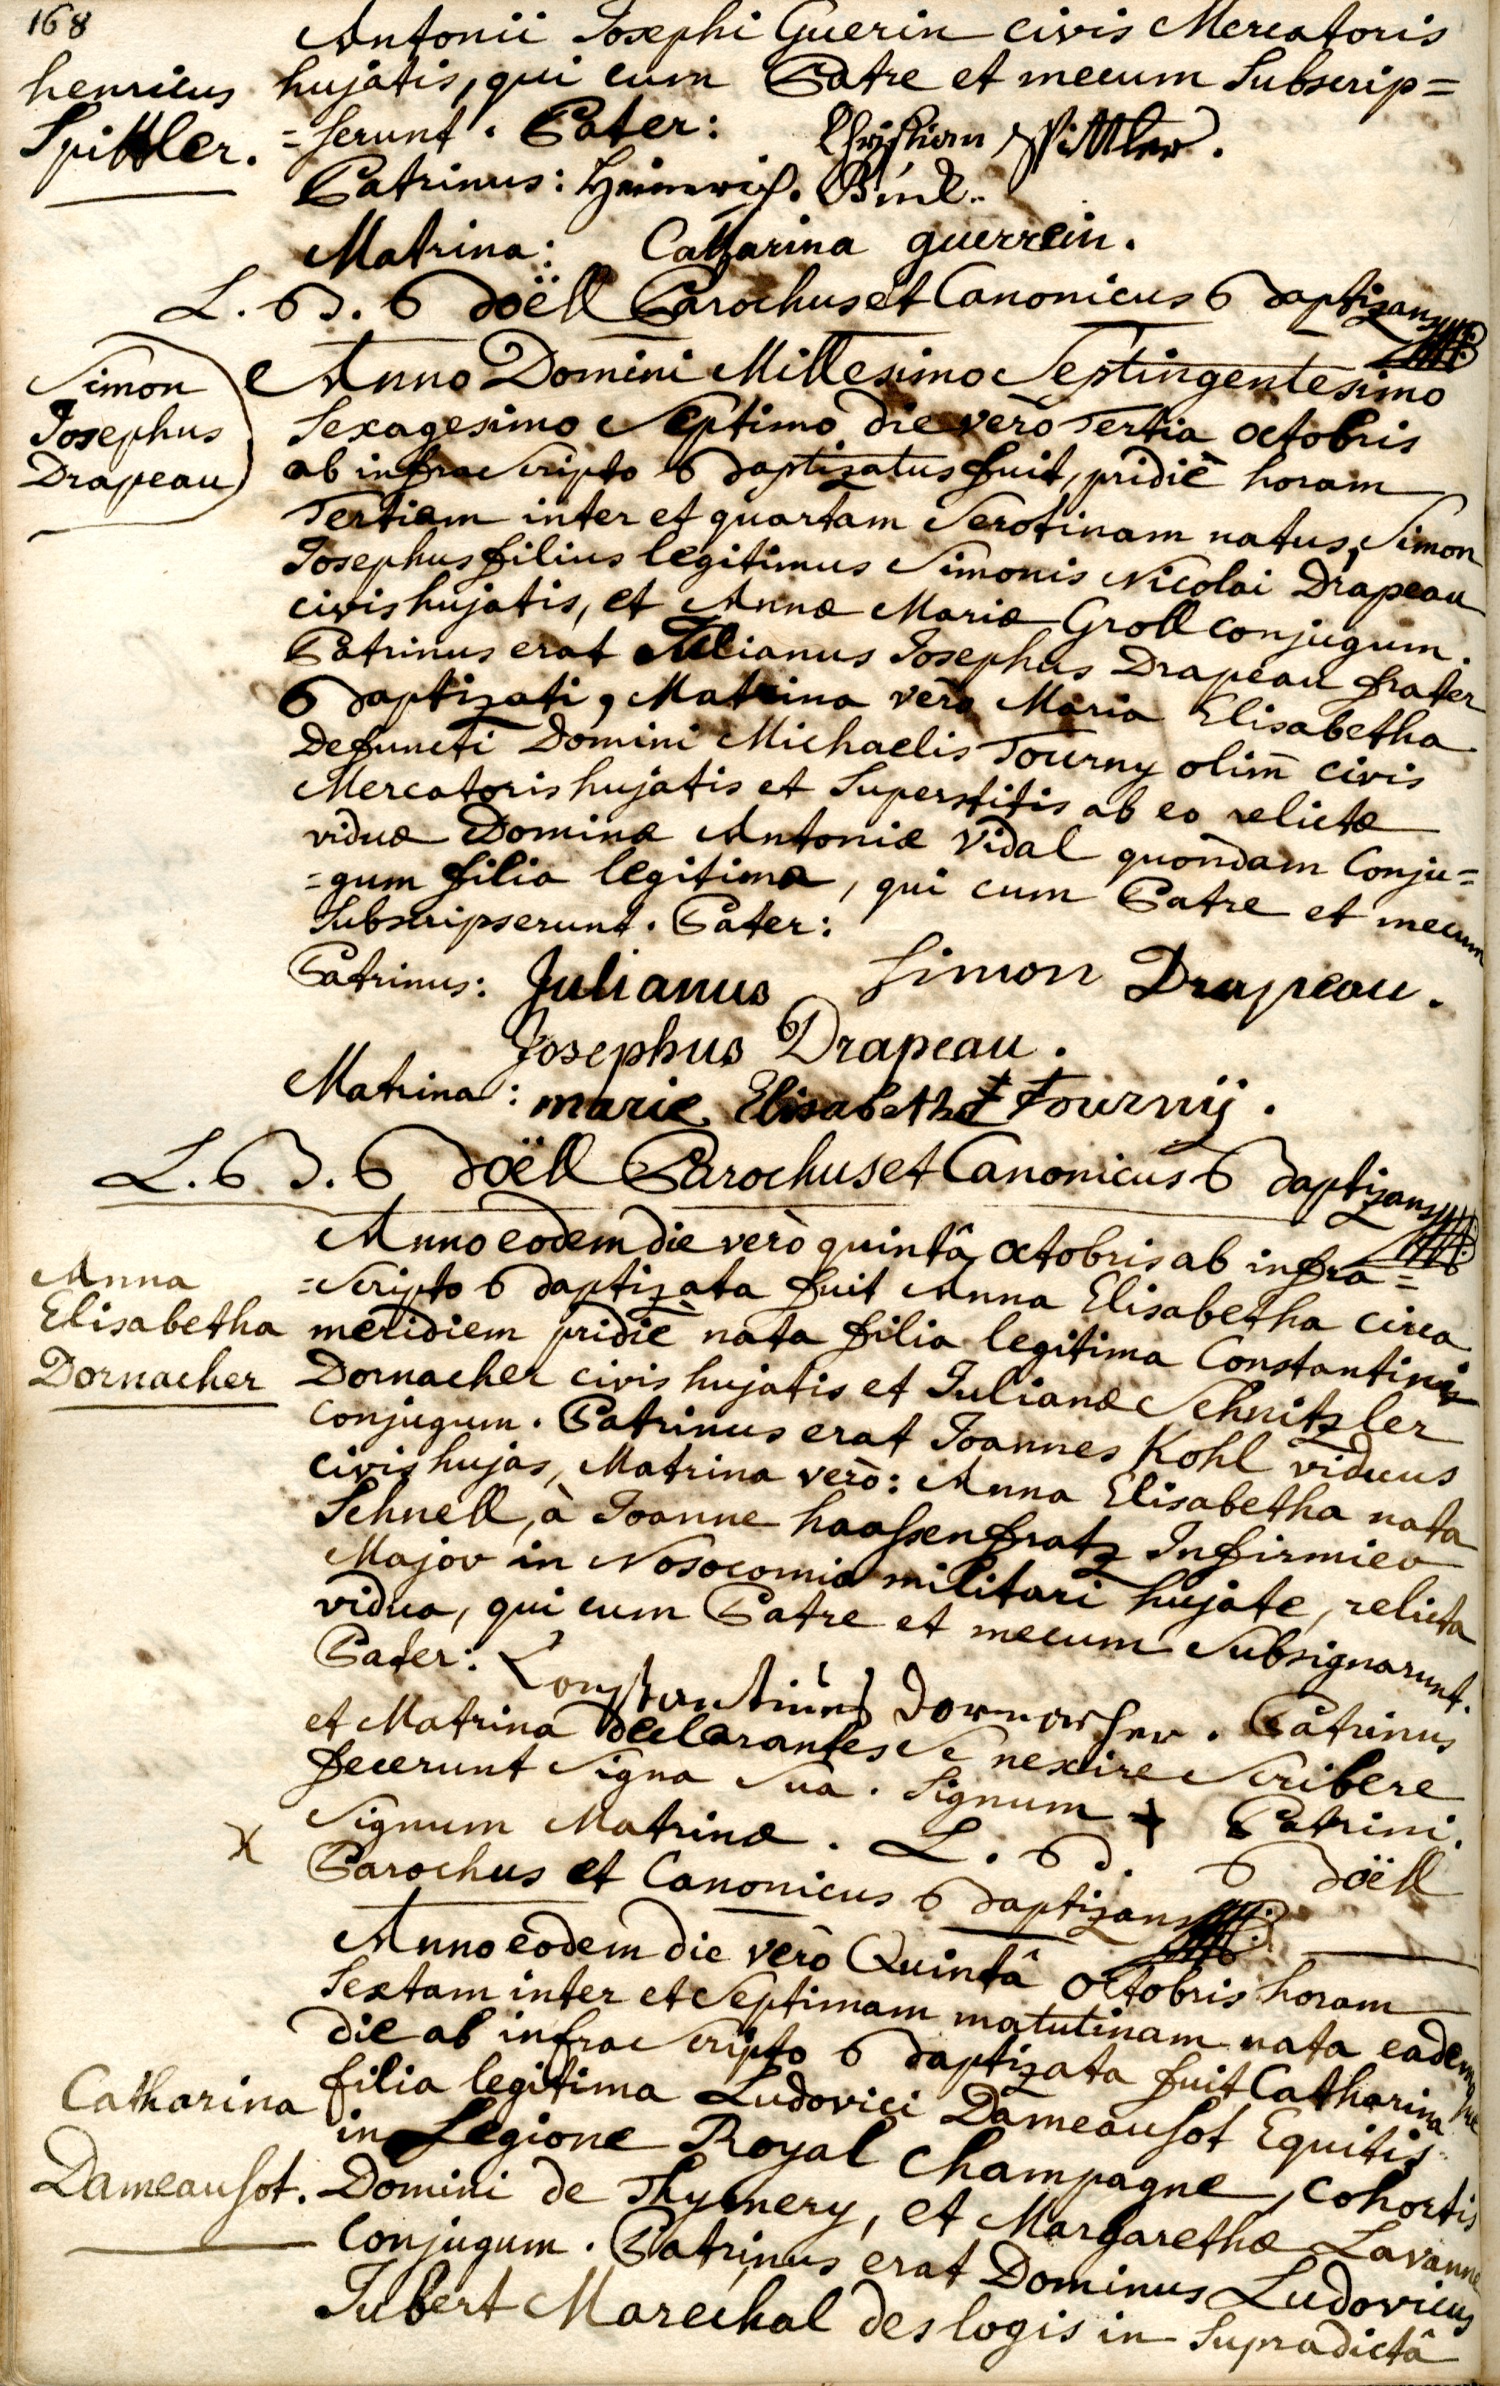 168
Antonii Josephi Guerin civis Mercatoris
henricus
Spittler.
hujatis, qui cum Patre et mecum Subscrip=
=serunt. Pater: Christian Spittler.
Patrinus: Heinrich. Binck.
Matrina: Catharina guerrein.
L. B. Boëll Parochus et Canonicus Baptizans
Simon
Josephus
Drapeau
Anno Domini Millesimo Septingentesimo
Sexagesimo Septimo die verò Tertia octobris
ab infra Scripto Baptizatus fuit, pridiè horam
Tertiam inter et quartam Serotinam natus, Simon
Josephus filius legitimus Simonis Nicolai Drapeau
civis hujatis, et Annæ Mariæ Groll conjugum.
Patrinus erat Julianus Josephus Drapeau frater
Baptizati, Matrina verò Maria Elisabetha
Defuncti Domini Michaelis Tourny olim civis
Mercatoris hujatis et Superstitis ab eo relictæ
viduæ Dominæ Antoniæ Vidal quondam Conju=
=gum filia legitima, qui cum Patre et mecum
Subscripserunt. Pater:
Simon Drapeau.
Patrinus: Julianus
Josephus Drapeau.
Matrina: marie Elisabethe Tournÿ.
L. B. Boëll Parochus et Canonicus Baptizans
Anna
Elisabetha
Dornacher
Anno eodem die verò quintâ octobris ab infra=
=Scripto Baptizata fuit Anna Elisabetha circa
meridiem pridiè nata filia legitima Constantini
Dornacher civis hujatis et Julianæ Schnitzler
conjugum. Patrinus erat Joannes Kohl viduus
civis hujas, Matrina verò: Anna Elisabetha nata
Schnell, à Joanne haassenfratz Infirmier
Major in Nosocomio militari hujate, relicta
vidua, qui cum Patre et mecum Subsignarunt.
Pater: Constantinus Dornacher. Patrinus
et Matrina declarantes Se nescire Scribere
fecerunt Signa Sua. Signum + Patrini.
X Signum Matrinæ. L. B. Boëll
Parochus et Canonicus Baptizans
Anno eodem die verò Quintâ octobris horam
Sextam inter et Septimam matutinam nata eademque
die ab infra Scripto Baptizata fuit Catharina
Catharina
Dameausot.
filia legitima Ludovici Dameausot Equitis
in Legione Royal Champagne, Cohortis
Domini de Thymery, et Margarethæ Lavanne
Conjugum. Patrinus erat Dominus Ludovicus
Jubert Marechal des logis in Supradictâ